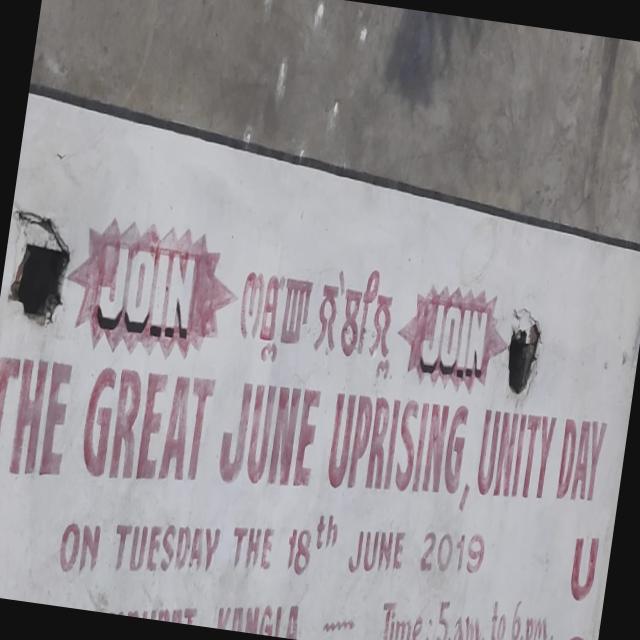 JOIN JOIN
THE GREAT JUNE UPRISING, UNITY DAY
ON TUESDAY THE 18th JUNE 2019 U
KANGLA ---- Time: 5 a.m. to 6 p.m.